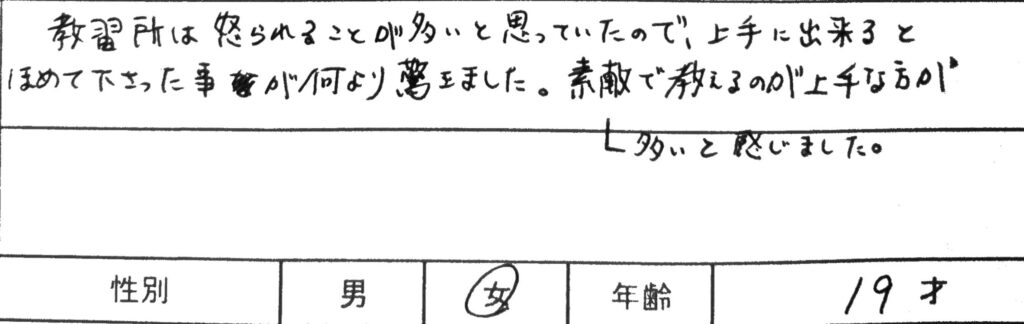 教習所は怒られることが多いと思っていたので、上手に出来ると
ほめて下さった事が何より驚きました。素敵で教えるのが上手な方が
多いと感じました。
性別 男 女 年齢 19才